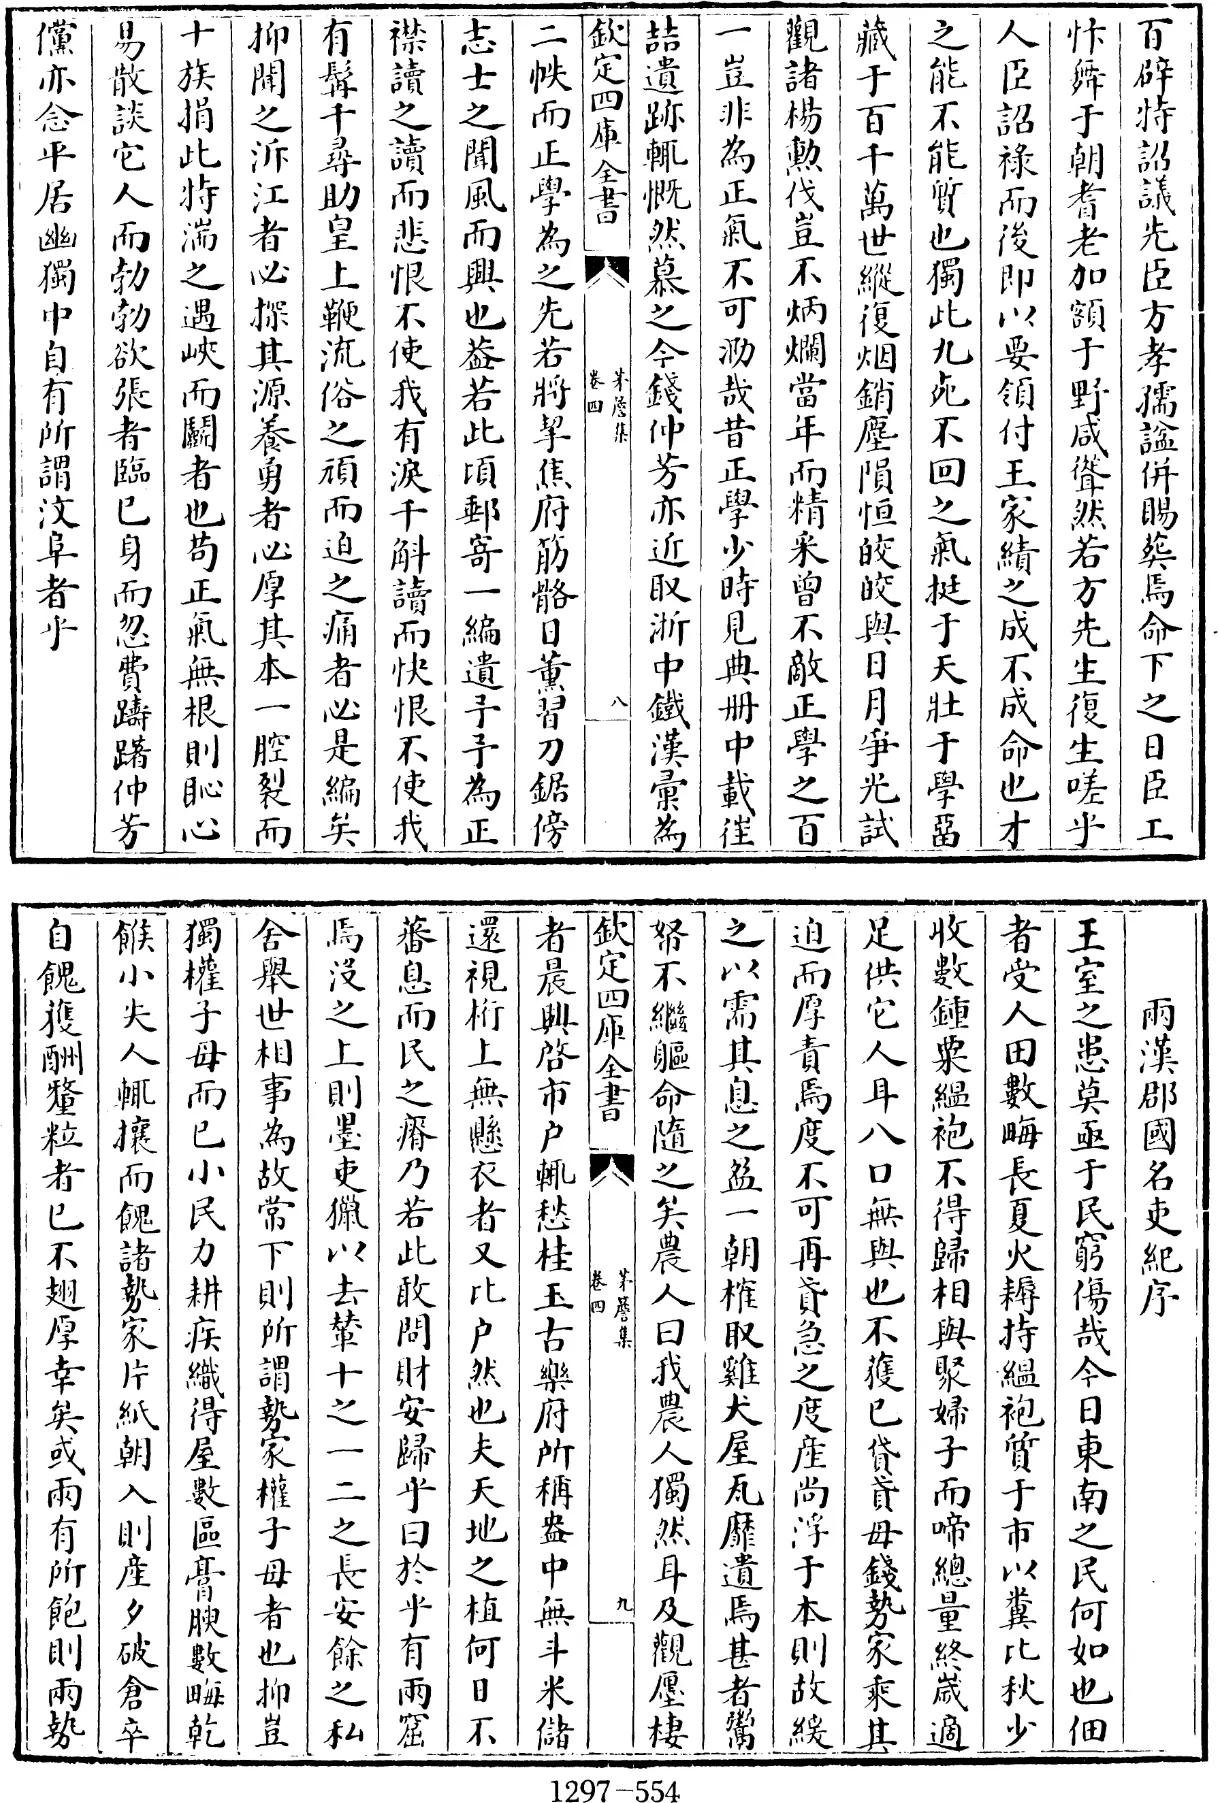 百辟特詔議先臣方孝孺諡併賜葬焉命下之日臣工
忭舞于朝耆老加額于野咸聳然若方先生復生嗟乎
人臣詔祿而後即以要領付王家績之成不成命也才
之能不能質也獨此九死不回之氣挺于天壯于學畱
藏于百千萬世縱復烟銷塵隕恒皎皎與日月爭光試
觀諸楊勲伐豈不炳爛當年而精采曾不敵正學之百
一豈非為正氣不可泐哉昔正學少時見典册中載徃
喆遺跡輒慨然慕之今錢仲芳亦近取浙中鐵漢彙為
欽定四庫全書
茅簷集
卷四
八
二帙而正學為之先若將挈焦府筋骼日薰習刀鋸傍
志士之聞風而興也葢若此頃郵寄一編遺予予為正
襟讀之讀而悲恨不使我有淚千斛讀而快恨不使我
有髯千尋助皇上鞭流俗之頑而迫之痛者必是編矣
抑聞之泝江者必探其源養勇者必厚其本一腔裂而
十族捐此特湍之遇峽而鬭者也苟正氣無根則恥心
易散談它人而勃勃欲張者臨已身而忽費躊躇仲芳
儻亦念平居幽獨中自有所謂汶阜者乎
兩漢郡國名吏紀序
王室之患莫亟于民窮傷哉今日東南之民何如也佃
者受人田數畮長夏火耨持緼袍質于市以糞比秋少
收數鍾粟緼袍不得歸相與聚婦子而啼總量終歲適
足供它人耳八口無與也不獲已貸貣母錢勢家乘其
迫而厚責焉度不可再貣急之度產尚浮于本則故緩
之以需其息之盈一朝榷取雞犬屋瓦靡遺焉甚者鬻
帑不繼軀命隨之矣農人曰我農人獨然耳及觀廛棲
欽定四庫全書
茅簷集
卷四
九
者晨興啓市户輒愁桂玉古樂府所稱盎中無斗米儲
還視桁上無懸衣者又比户然也夫天地之植何日不
蕃息而民之瘠乃若此敢問財安歸乎曰於乎有兩窟
焉沒之上則墨吏獵以去輦十之一二之長安餘之私
舍舉世相事為故常下則所謂勢家權子母者也抑豈
獨權子母而已小民力耕疾織得屋數區膏腴數畮乾
餱小失人輒攘而餽諸勢家片紙朝入則產夕破倉卒
自餽獲酬釐粒者已不翅厚幸矣或兩有所飽則兩勢
1297-554